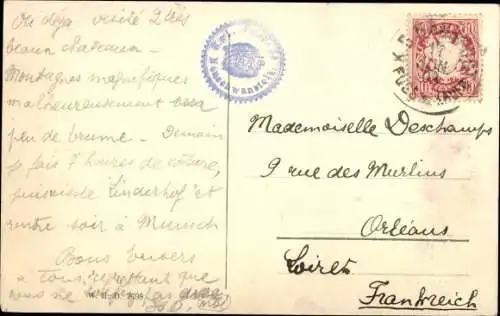 Ai déjà visité 2 très
beaux chateaux.
Montagnes magnifiques
malheureusement
peu de brume. Demain
je fais 7 heures de voiture,
puis visite Linderhof et
rentre soir à Munich
Bons baisers
à tous, regrettant que
vous ne soyez pas avec
Neuschwanstein
BAYERN
17
JUN
FÜSSEN
Mademoiselle Deschamps
9 rue des Murlins
Orléans
Loiret
Frankreich